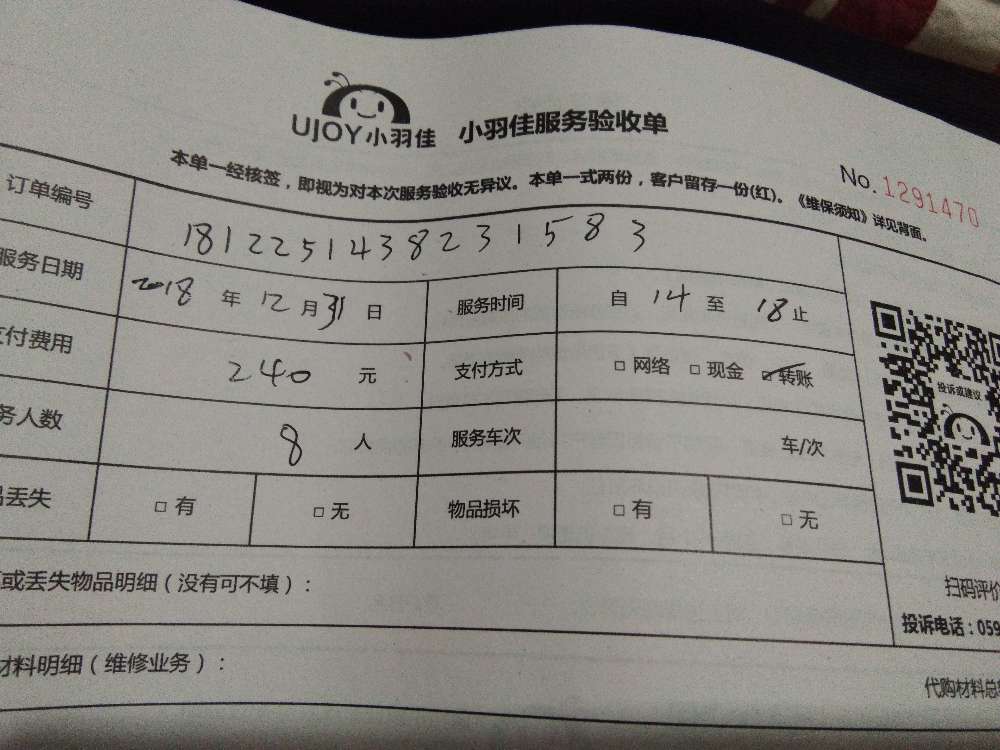 UJOY小羽佳 小羽佳服务验收单
No. 1291470
本单一经核签，即视为对本次服务验收无异议。本单一式两份，客户留存一份(红)。《维保须知》详见背面。
订单编号 181225143823 1583
服务日期 2018 年 12 月 31 日 服务时间 自 14 至 18 止
支付费用 240 元 支付方式 □ 网络 □ 现金 ☑ 转账
务人数 8 人 服务车次 车/次
丢失 □ 有 □ 无 物品损坏 □ 有 □ 无
投诉或建议
或丢失物品明细（没有可不填）：
扫码评价
投诉电话：059
材料明细（维修业务）：
代购材料总